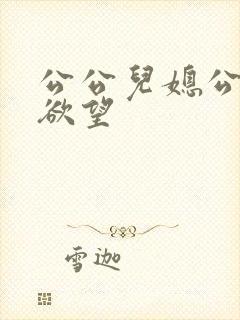 公公兒媳公
欲望
雪迦